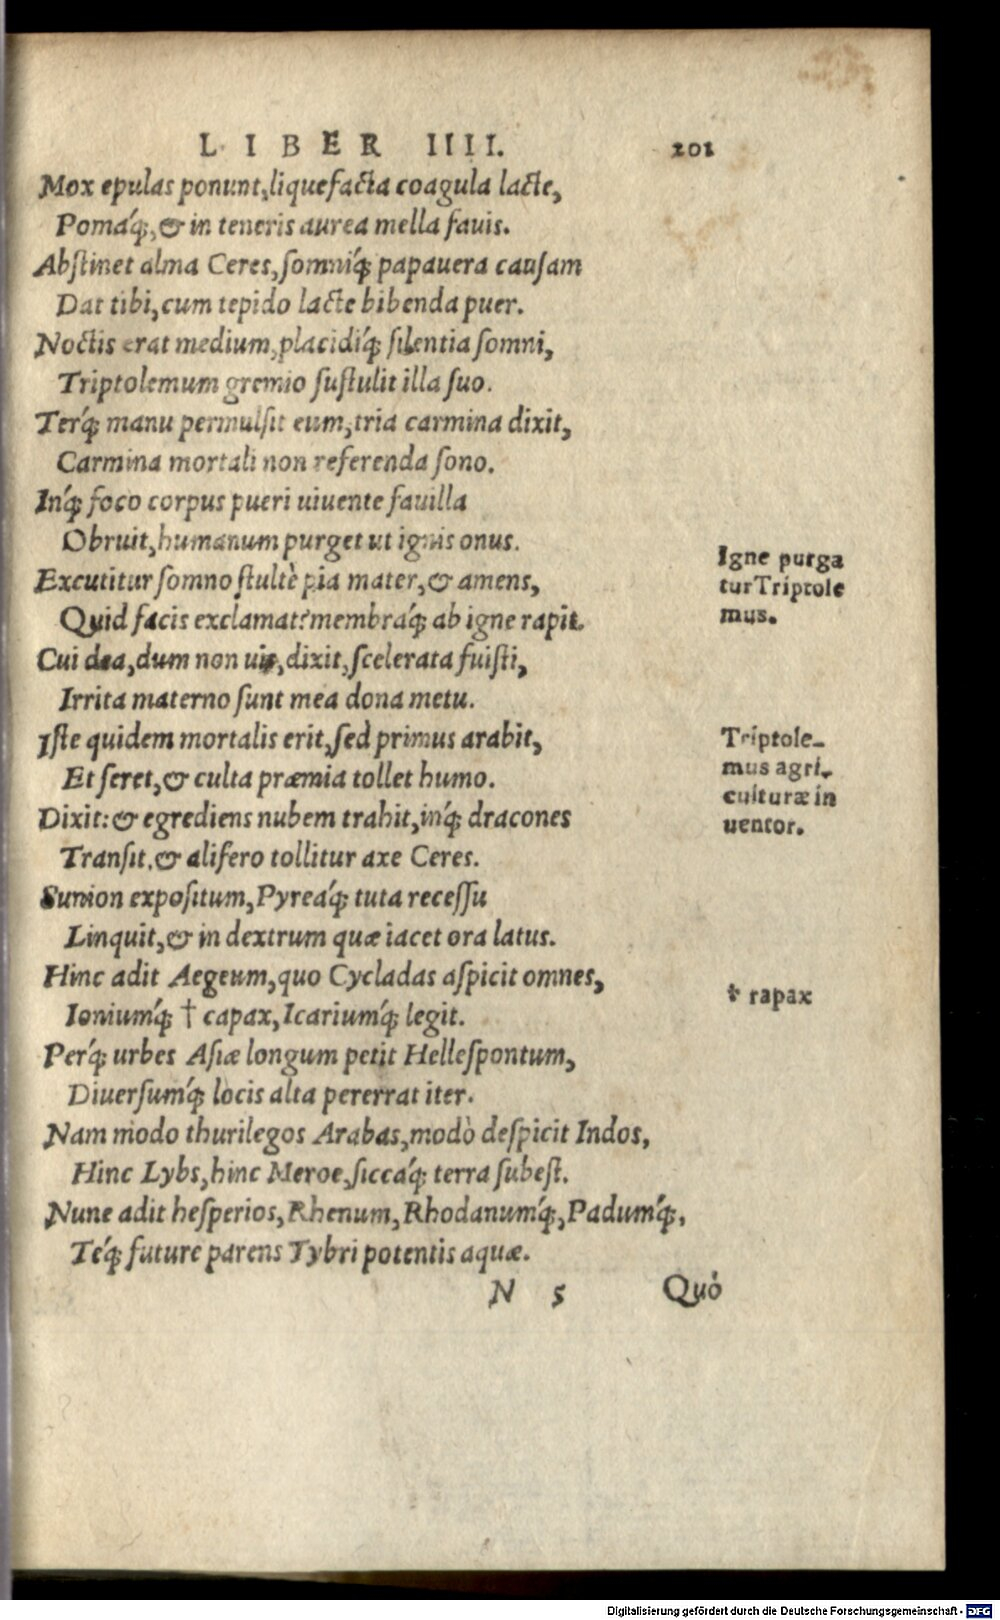 LIBER IIII. 201
Mox epulas ponunt, liquefacta coagula lacte,
Pomáq́;, & in teneris aurea mella fauis.
Abſtinet alma Ceres, ſomniq́; papauera cauſam
Dat tibi, cum tepido lacte bibenda puer.
Noctis erat medium, placidiq́; ſilentia ſomni,
Triptolemum gremio ſuſtulit illa ſuo.
Terq́; manu permulſit eum, tria carmina dixit,
Carmina mortali non referenda ſono.
Inq́; foco corpus pueri uiuente fauilla
Obruit, humanum purget ut ignis onus.
Excutitur ſomno ſtultè pia mater, & amens,
Quid facis exclamat? membraq́; ab igne rapit.
Igne purga
turTriptole
mus.
Cui dea, dum non uis, dixit, ſcelerata fuiſti,
Irrita materno ſunt mea dona metu.
Iſte quidem mortalis erit, ſed primus arabit,
Et ſeret, & culta præmia tollet humo.
Triptole-
mus agri-
culturæ in
uentor.
Dixit: & egrediens nubem trahit, inq́; dracones
Tranſit, & alifero tollitur axe Ceres.
Sunion expoſitum, Pyreáq́; tuta receſſu
Linquit, & in dextrum quæ iacet ora latus.
Hinc adit Aegeum, quo Cycladas aſpicit omnes,
Ioniumq́; † capax, Icariumq́; legit.
† rapax
Perq́; urbes Aſiæ longum petit Helleſpontum,
Diuerſumq́; locis alta pererrat iter.
Nam modo thurilegos Arabas, modò deſpicit Indos,
Hinc Lybs, hinc Meroe, ſiccáq́; terra ſubeſt.
Nunc adit heſperios, Rhenum, Rhodanumq́;, Padumq́;,
Teq́; future parens Tybri potentis aquæ.
N 5 Quò
Digitalisierung gefördert durch die Deutsche Forschungsgemeinschaft - DFG